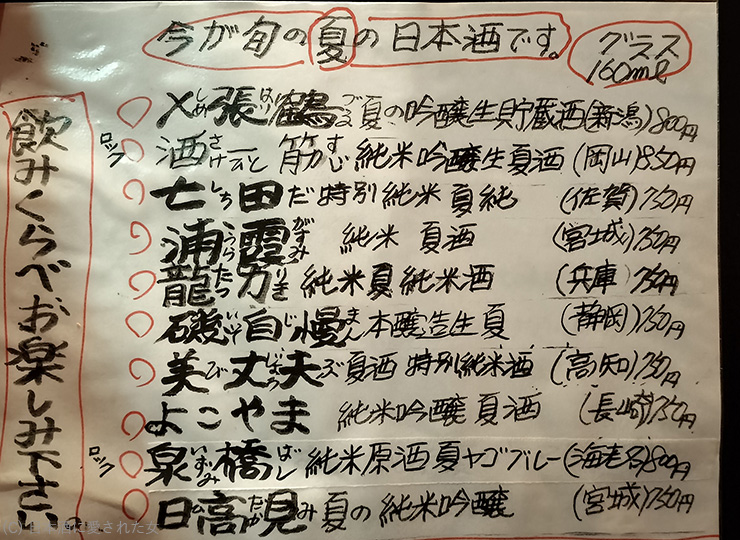 今が旬の夏の日本酒です。
グラス
160ml
飲みくらべお楽しみ下さい。
〆張鶴 夏の吟醸生貯蔵酒(新潟)800円
ロック 酒一筋 純米吟醸生夏酒(岡山)850円
七田 特別純米 夏純 (佐賀)750円
浦霞 純米 夏酒 (宮城)750円
龍力 純米夏純米酒 (兵庫)750円
磯自慢 本醸造生夏 (静岡)750円
美丈夫 夏酒 特別純米酒 (高知)750円
よこやま 純米吟醸 夏酒 (長崎)750円
ロック 泉橋 純米原酒 夏ヤゴブルー(海老名)800円
日高見 夏の純米吟醸 (宮城)750円
(c) 日本酒に愛された女